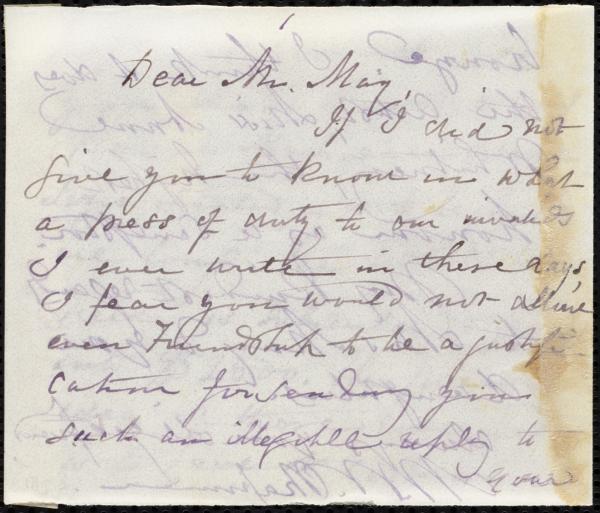 Dear Mr. May,
If I did not
give you to know in what
a press of duty to our invalids
I ever write in these days,
I fear you would not allow
even Friendship to be a justifi-
cation for sending you
such an illegible reply to
your